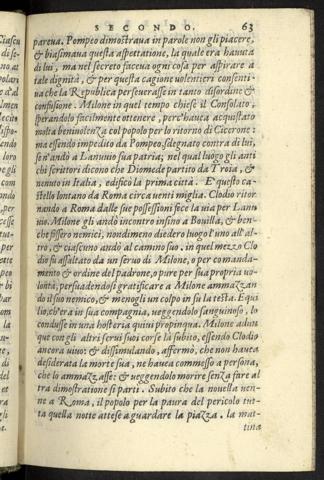 SECONDO. 63
pareua. Pompeo dimostraua in parole non gli piacere,
& biasimaua questa aspettatione, la quale era hauuta
di lui, ma nel secreto faceua ogni cosa per aspirare a
tale dignità, & per questa cagione uolentieri consenti-
ua che la Republica perseuerasse in tanto disordine &
confusione. Milone in quel tempo chiese il Consolato,
sperandolo facilmente ottenere, perc'haueua acquistato
molta beniuolenza col popolo per lo ritorno di Cicerone:
ma essendo impedito da Pompeo, sdegnato contra di lui,
se n'andò a Lanuuio sua patria; nel qual luogo gli anti
chi scrittori dicono che Diomede partito da Troia, &
uenuto in Italia, edificò la prima città. E' questo ca-
stello lontano da Roma circa uenti miglia. Clodio ritor
nando a Roma dalle sue possessioni fece la uia per Lanu
uio. Milone gli andò incontro insino a Bouilla, & ben-
che fissero nemici, nondimeno diedero luogo l'uno all'al
tro, & ciascuno andò al camin suo. in quel mezzo Clo
dio fu assaltato da un seruo di Milone, o per comanda-
mento & ordine del padrone, o pure per sua propria uo-
lontà, persuadendosi gratificare a Milone ammazzan
do il suo nemico, & menogli un colpo in su la testa. E qui
lio, ch'era in sua compagnia, ueggendolo sanguinoso, lo
condusse in una hosteria quiui propinqua. Milone adun
que con gli altri serui suoi corse là subito, essendo Clodio
ancora uiuo: & dissimulando, affermò, che non haueua
desiderata la morte sua, ne haueua commesso a persona,
che lo ammazzasse: & ueggendolo morire senza fare al
tra dimostratione si partì. Subito che la nouella uen-
ne a Roma, il popolo per la paura del pericolo tut-
ta quella notte attese a guardare la piazza. la mat-
tina